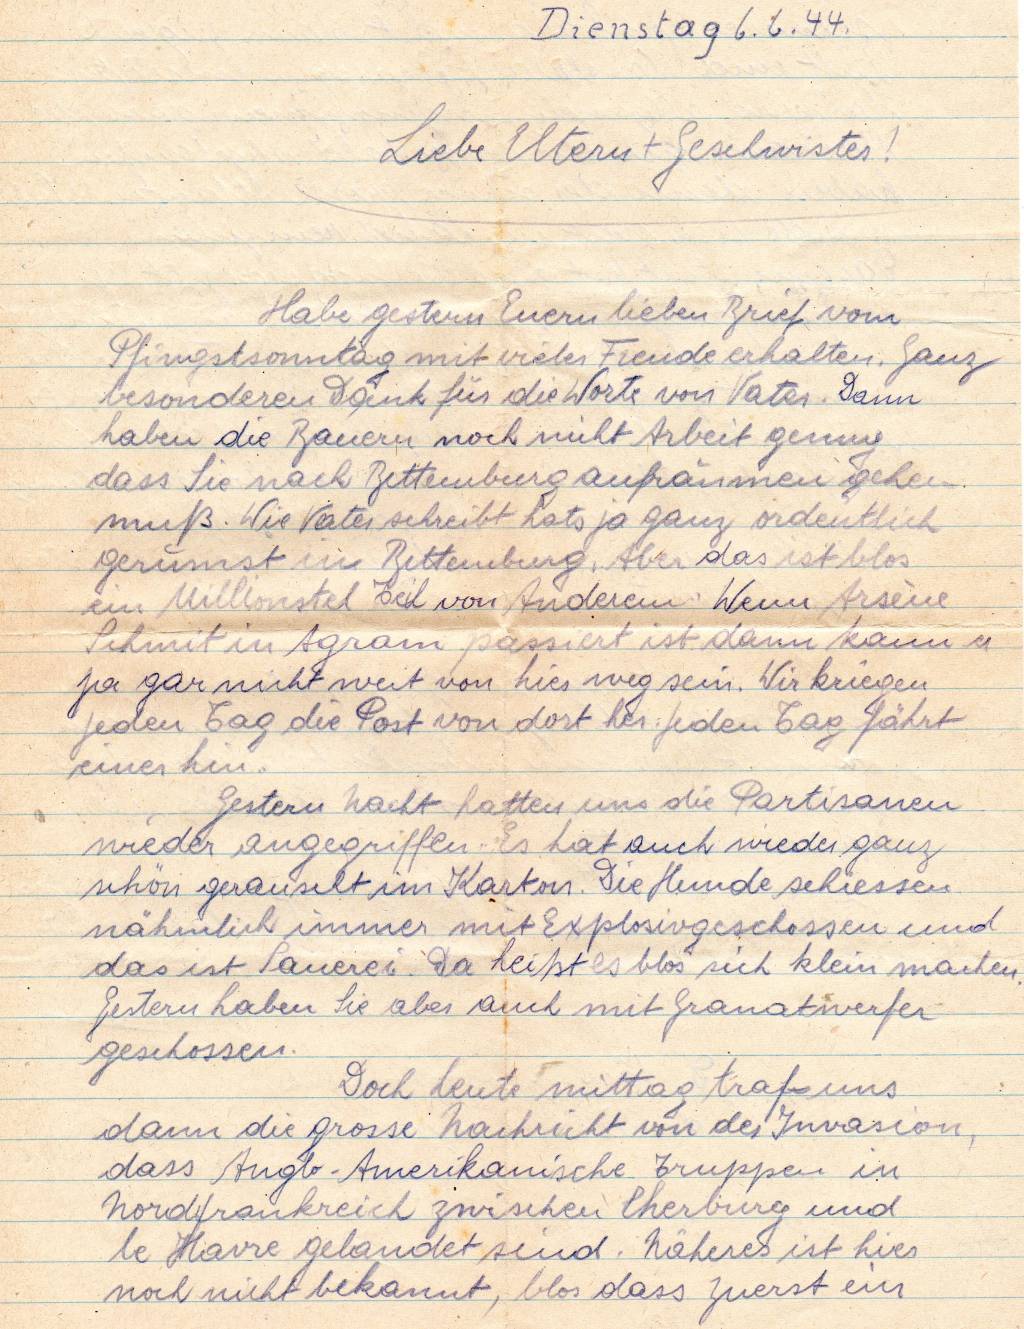 Dienstag 6.6.44.
Liebe Eltern + Geschwister!
Habe gestern Euern lieben Brief vom
Pfingstsonntag mit vieler Freude erhalten. Ganz
besonderen Dank für die Worte von Vater. Dann
haben die Bauern noch nicht Arbeit genug
dass Sie nach Bettemburg aufräumen gehen
muß. Wie Vater schreibt hats ja ganz ordentlich
gerumst in Bettemburg. Aber das ist blos
ein Millionstel Teil von Anderem. Wenn Arsène
Schmit in Agram passiert ist dann kann er
ja gar nicht weit von hier weg sein. Wir kriegen
jeden Tag die Post von dort her. jeden Tag fährt
einer hin.
Gestern Nacht hatten uns die Partisanen
wieder angegriffen. Es hat auch wieder ganz
schön gerauscht im Karton. Die Hunde schiessen
nähmlich immer mit Explosivgeschossen und
das ist Sauerei. Da heißt es blos sich klein machen.
Gestern haben Sie aber auch mit Granatwerfer
geschossen.
Doch heute mittag traf uns
dann die grosse Nachricht von der Invasion,
dass Anglo-Amerikanische Truppen in
Nordfrankreich zwischen Cherburg und
le Havre gelandet sind. Näheres ist hier
noch nicht bekannt, blos dass zuerst ein